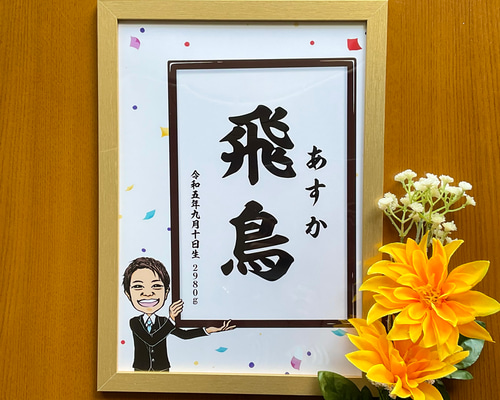 あすか
飛鳥
令和五年九月十日生 2980g